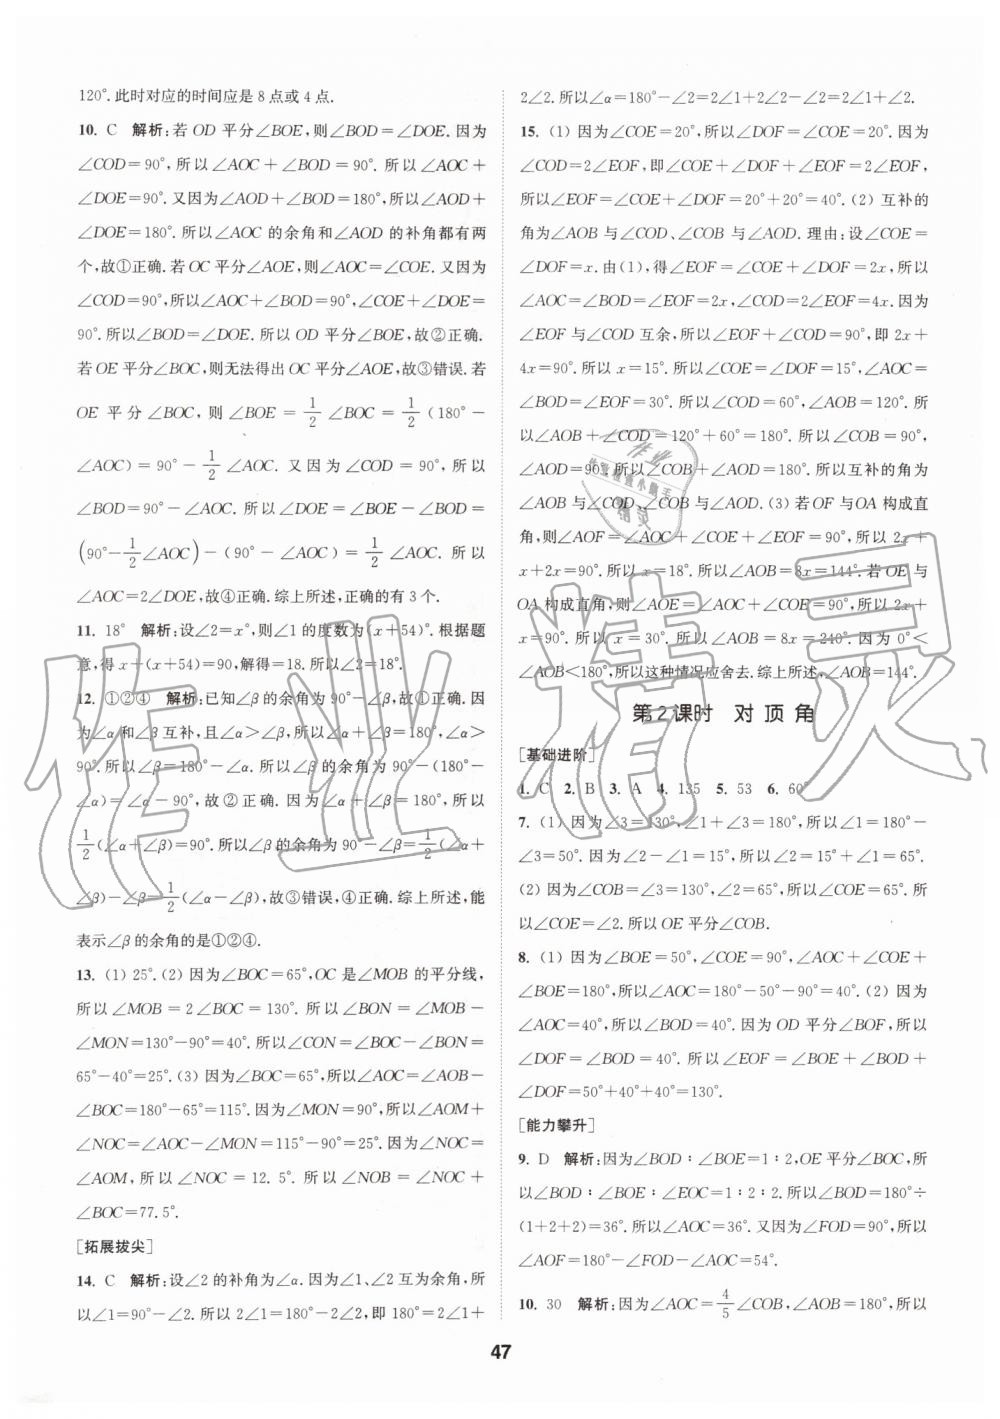 120°.此时对应的时间应是8点或4点.
10. C 解析:若OD平分∠BOE,则∠BOD=∠DOE.因为
∠COD=90°,所以∠AOC+∠BOD=90°.所以∠AOC+
∠DOE=90°.又因为∠AOD+∠BOD=180°,所以∠AOD
+∠DOE=180°.所以∠AOC的余角和∠AOD的补角都有两
个,故①正确.若OC平分∠AOE,则∠AOC=∠COE.又因为
∠COD=90°,所以∠AOC+∠BOD=90°,∠COE+∠DOE=
90°.所以∠BOD=∠DOE.所以OD平分∠BOE,故②正确.
若OE平分∠BOC,则无法得出OC平分∠AOE,故③错误.若
OE平分∠BOC,则∠BOE=1/2∠BOC=1/2(180°-
∠AOC)=90°-1/2∠AOC.又因为∠COD=90°,所以
∠BOD=90°-∠AOC.所以∠DOE=∠BOE-∠BOD=
(90°-1/2∠AOC)-(90°-∠AOC)=1/2∠AOC.所以
∠AOC=2∠DOE,故④正确.综上所述,正确的有3个.
11. 18° 解析:设∠2=x°,则∠1的度数为(x+54)°.根据题
意,得x+(x+54)=90,解得=18.所以∠2=18°.
12. ①②④ 解析:已知∠β的余角为90°-∠β,故①正确.因
为∠α和∠β互补,且∠α>∠β,所以∠α+∠β=180°,∠α>
90°.所以∠β=180°-∠α.所以∠β的余角为90°-(180°-
∠α)=∠α-90°,故②正确.因为∠α+∠β=180°,所以
1/2(∠α+∠β)=90°.所以∠β的余角为90°-∠β=1/2(∠α+
∠β)-∠β=1/2(∠α-∠β),故③错误,④正确.综上所述,能
表示∠β的余角的是①②④.
13. (1) 25°.(2) 因为∠BOC=65°,OC是∠MOB的平分线,
所以∠MOB=2∠BOC=130°.所以∠BON=∠MOB-
∠MON=130°-90°=40°.所以∠CON=∠BOC-∠BON=
65°-40°=25°.(3) 因为∠BOC=65°,所以∠AOC=∠AOB-
∠BOC=180°-65°=115°.因为∠MON=90°,所以∠AOM+
∠NOC=∠AOC-∠MON=115°-90°=25°.因为∠NOC=
∠AOM,所以∠NOC=12.5°.所以∠NOB=∠NOC+
∠BOC=77.5°.
[拓展拔尖]
14. C 解析:设∠2的补角为∠α.因为∠1、∠2互为余角,所
以∠1=90°-∠2.所以2∠1=180°-2∠2,即180°=2∠1+
2∠2.所以∠α=180°-∠2=2∠1+2∠2-∠2=2∠1+∠2.
15. (1) 因为∠COE=20°,所以∠DOF=∠COE=20°.因为
∠COD=2∠EOF,即∠COE+∠DOF+∠EOF=2∠EOF,
所以∠EOF=∠COE+∠DOF=20°+20°=40°.(2) 互补的
角为∠AOB与∠COD、∠COB与∠AOD.理由:设∠COE=
∠DOF=x.由(1),得∠EOF=∠COE+∠DOF=2x,所以
∠AOC=∠BOD=∠EOF=2x,∠COD=2∠EOF=4x.因为
∠EOF与∠COD互余,所以∠EOF+∠COD=90°,即2x+
4x=90°.所以x=15°.所以∠COE=∠DOF=15°,∠AOC=
∠BOD=∠EOF=30°.所以∠COD=60°,∠AOB=120°.所
以∠AOB+∠COD=120°+60°=180°.所以∠COB=90°,
∠AOD=90°.所以∠COB+∠AOD=180°.所以互补的角为
∠AOB与∠COD、∠COB与∠AOD.(3) 若OF与OA构成直
角,则∠AOF=∠AOC+∠COE+∠EOF=90°.所以2x+
x+2x=90°.所以x=18°.所以∠AOB=8x=144°.若OE与
OA构成直角,则∠AOE=∠AOC+∠COE=90°,所以2x+
x=90°.所以x=30°.所以∠AOB=8x=240°.因为0°<
∠AOB<180°,所以这种情况应舍去.综上所述,∠AOB=144°.
第2课时 对顶角
[基础进阶]
1. C 2. B 3. A 4. 135 5. 53 6. 60°
7. (1) 因为∠3=130°,∠1+∠3=180°,所以∠1=180°-
∠3=50°.因为∠2-∠1=15°,所以∠2=15°+∠1=65°.
(2) 因为∠COB=∠3=130°,∠2=65°,所以∠COE=65°.所
以∠COE=∠2.所以OE平分∠COB.
8. (1) 因为∠BOE=50°,∠COE=90°,∠AOC+∠COE+
∠BOE=180°,所以∠AOC=180°-50°-90°=40°.(2) 因为
∠AOC=40°,所以∠BOD=40°.因为OD平分∠BOF,所以
∠DOF=∠BOD=40°.所以∠EOF=∠BOE+∠BOD+
∠DOF=50°+40°+40°=130°.
[能力攀升]
9. D 解析:因为∠BOD∶∠BOE=1∶2,OE平分∠BOC,所
以∠BOD∶∠BOE∶∠EOC=1∶2∶2.所以∠BOD=180°÷
(1+2+2)=36°.所以∠AOC=36°.又因为∠FOD=90°,所以
∠AOF=180°-∠FOD-∠AOC=54°.
10. 30 解析:因为∠AOC=4/5∠COB,∠AOB=180°,所以
47
作业精灵